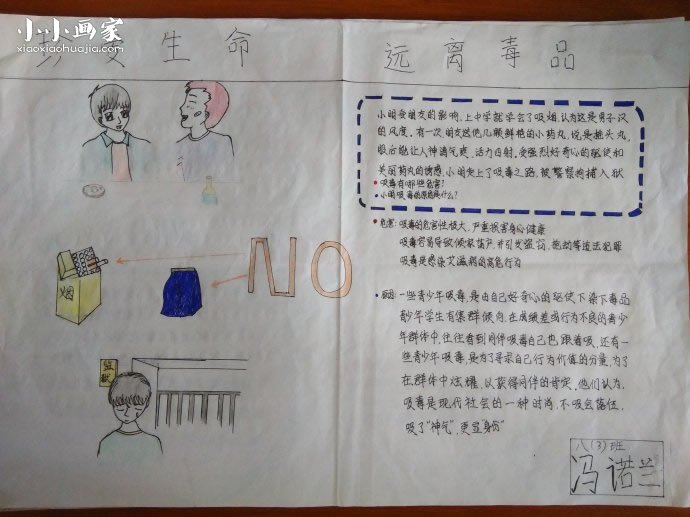 小小画家
xiaoxiaohuajia.com
生命 远离毒品
小明受朋友的影响,上中学就学会了吸烟,认为这是男子汉
的风度。有一次朋友送他几颗鲜艳的小药丸,说是摇头丸,
服后能让人神清气爽,活力四射,受强烈好奇心的驱使和
美丽药丸的诱惑,小明走上了吸毒之路,被警察拘捕入狱
吸毒有哪些危害?
小明吸毒的原因是什么?
危害:吸毒的危害性极大,严重损害身心健康
吸毒容易导致倾家荡产,并引发盗窃、抢劫等违法犯罪
吸毒是感染艾滋病的高危行为
烟
NO
原因:一些青少年吸毒,是由自己好奇心的驱使下染下毒品
青少年学生有集群倾向,在成绩差或行为不良的青少
年群体中,往往看到同伴吸毒自己也跟着吸,还有一
些青少年吸毒,是为了寻求自己行为价值的分量,为了
在群体中炫耀,以获得同伴的肯定,他们认为,
吸毒是现代社会的一种时尚,不吸会落伍,
吸了"神气",更显"身份"
监狱
八(3)班
冯诺兰